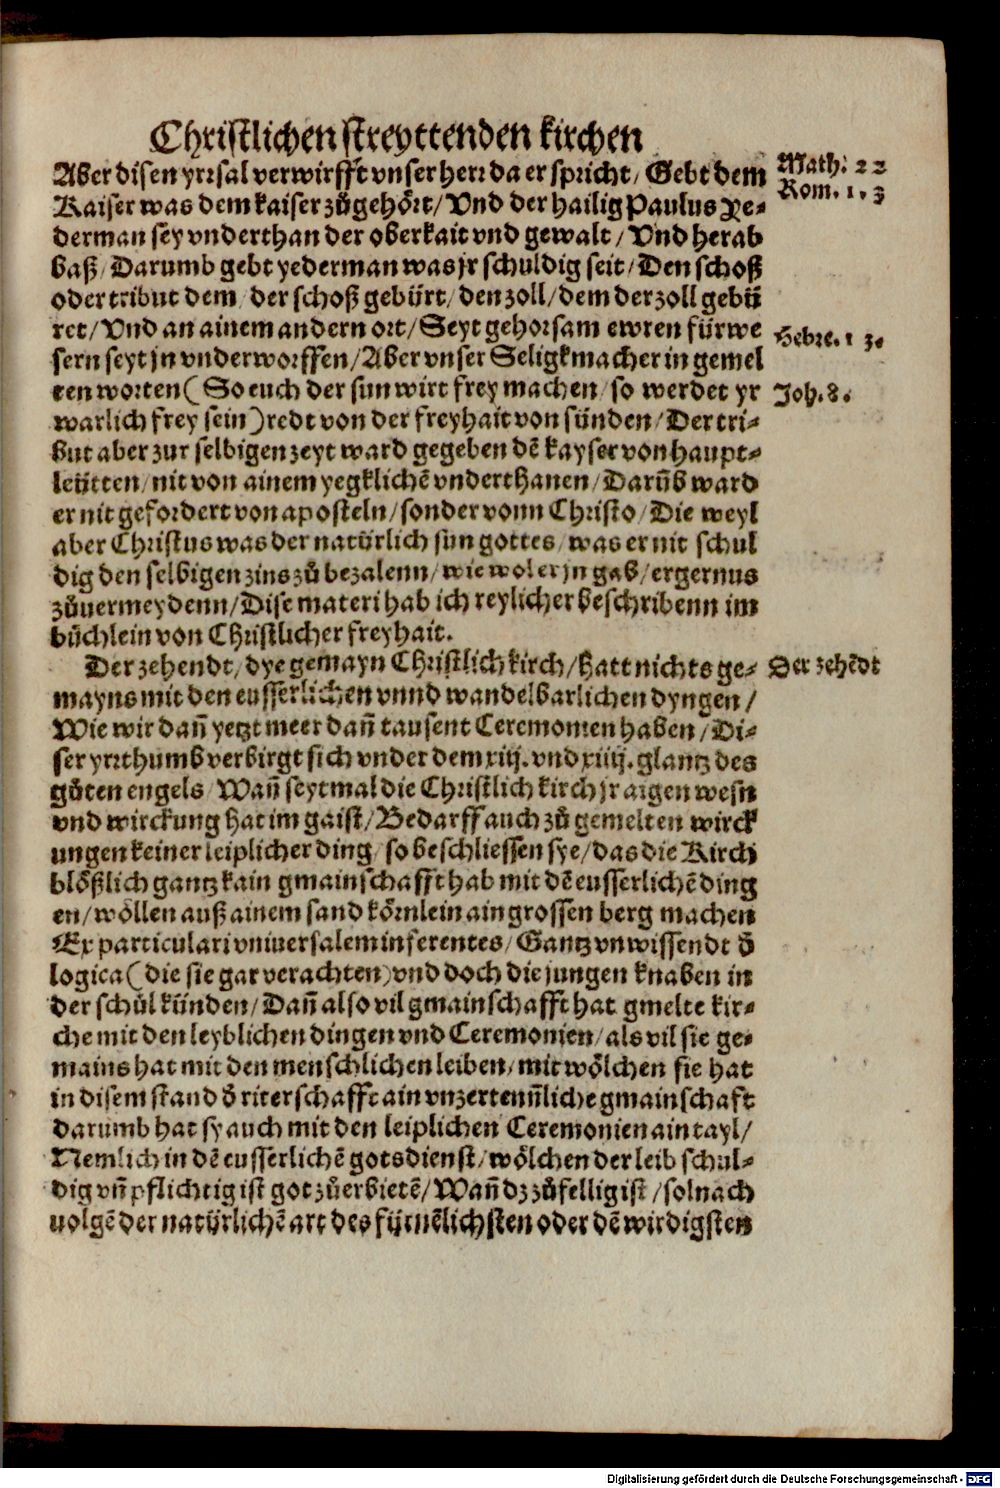 Christlichen streyttenden kirchen
Aber disen yrrsal verwirfft vnser herr da er spricht/ Gebt dem
Math: 22
Kaiser was dem kaiser zůgehört/ Vnd der hailig Paulus Ye-
Rom. 1.3
derman sey vnderthan der oberkait vnd gewalt/ Vnd herab
baß/ Darumb gebt yederman was jr schuldig seit/ Den schoß
oder tribut dem/ der schoß gebürt/ den zoll/ dem der zoll gebü
ret/ Vnd an ainem andern ort/ Seyt gehorsam ewren fürwe
Hebre. 1 3.
sern seyt jn vnderworffen/ Aber vnser Seligkmacher in gemel
ten worten (So euch der sun wirt frey machen/ so werdet yr
Joh. 8.
warlich frey sein) redt von der freyhait von sünden/ Der tri-
but aber zur selbigen zeyt ward gegeben dē kayser von haupt-
leütten/ nit von ainem yegklichē vnderthanen/ Darūb ward
er nit gefordert von aposteln/ sonder vonn Christo/ Die weyl
aber Christus was der natürlich sun gottes/ was er nit schul
dig den selbigen zins zů bezalenn/ wie wol er jn gab/ ergernus
zůuermeydenn/ Dise materi hab ich reylicher beschribenn im
büchlein von Christlicher freyhait.
Der zehendt/ dye gemayn Christlich kirch/ hatt nichts ge-
Der zehēdt
mayns mit den eusserlichen vnnd wandelbarlichen dyngen/
Wie wir dañ yetzt meer dañ tausent Ceremonien haben/ Di-
ser yrrthumb verbirgt sich vnder dem xiij. vnd xiiij. glantz des
gůten engels/ Wañ seytmal die Christlich kirch jr aigen wesn
vnd wirckung hat im gaist/ Bedarff auch zů gemelten wirck
ungen keiner leiplicher ding/ so beschliessen sye/ das die Kirch
blößlich gantz kain gmainschafft hab mit dē eusserlichē ding
en/ wöllen auß ainem sand körnlein ain grossen berg machen
Ex particulari vniuersalem inferentes/ Gantz vnwissendt d̄
logica (die sie gar verachten) vnd doch die jungen knaben in
der schůl künden/ Dañ also vil gmainschafft hat gmelte kir-
che mit den leyblichen dingen vnd Ceremonien/ als vil sie ge-
mains hat mit den menschlichen leiben/ mit wölchen sie hat
in disem stand d̄ riterschafft ain vnzertenn̄liche gmainschaft
darumb hat sy auch mit den leiplichen Ceremonien ain tayl/
Nemlich in dē eusserlichē gotsdienst/ wölchen der leib schul-
dig vñ pflichtig ist got zůerbietē/ Wañ dz zůfellig ist/ sol nach
uolgē der natürlichē art des fürnēlichsten oder dē wirdigsten
Digitalisierung gefördert durch die Deutsche Forschungsgemeinschaft - DFG